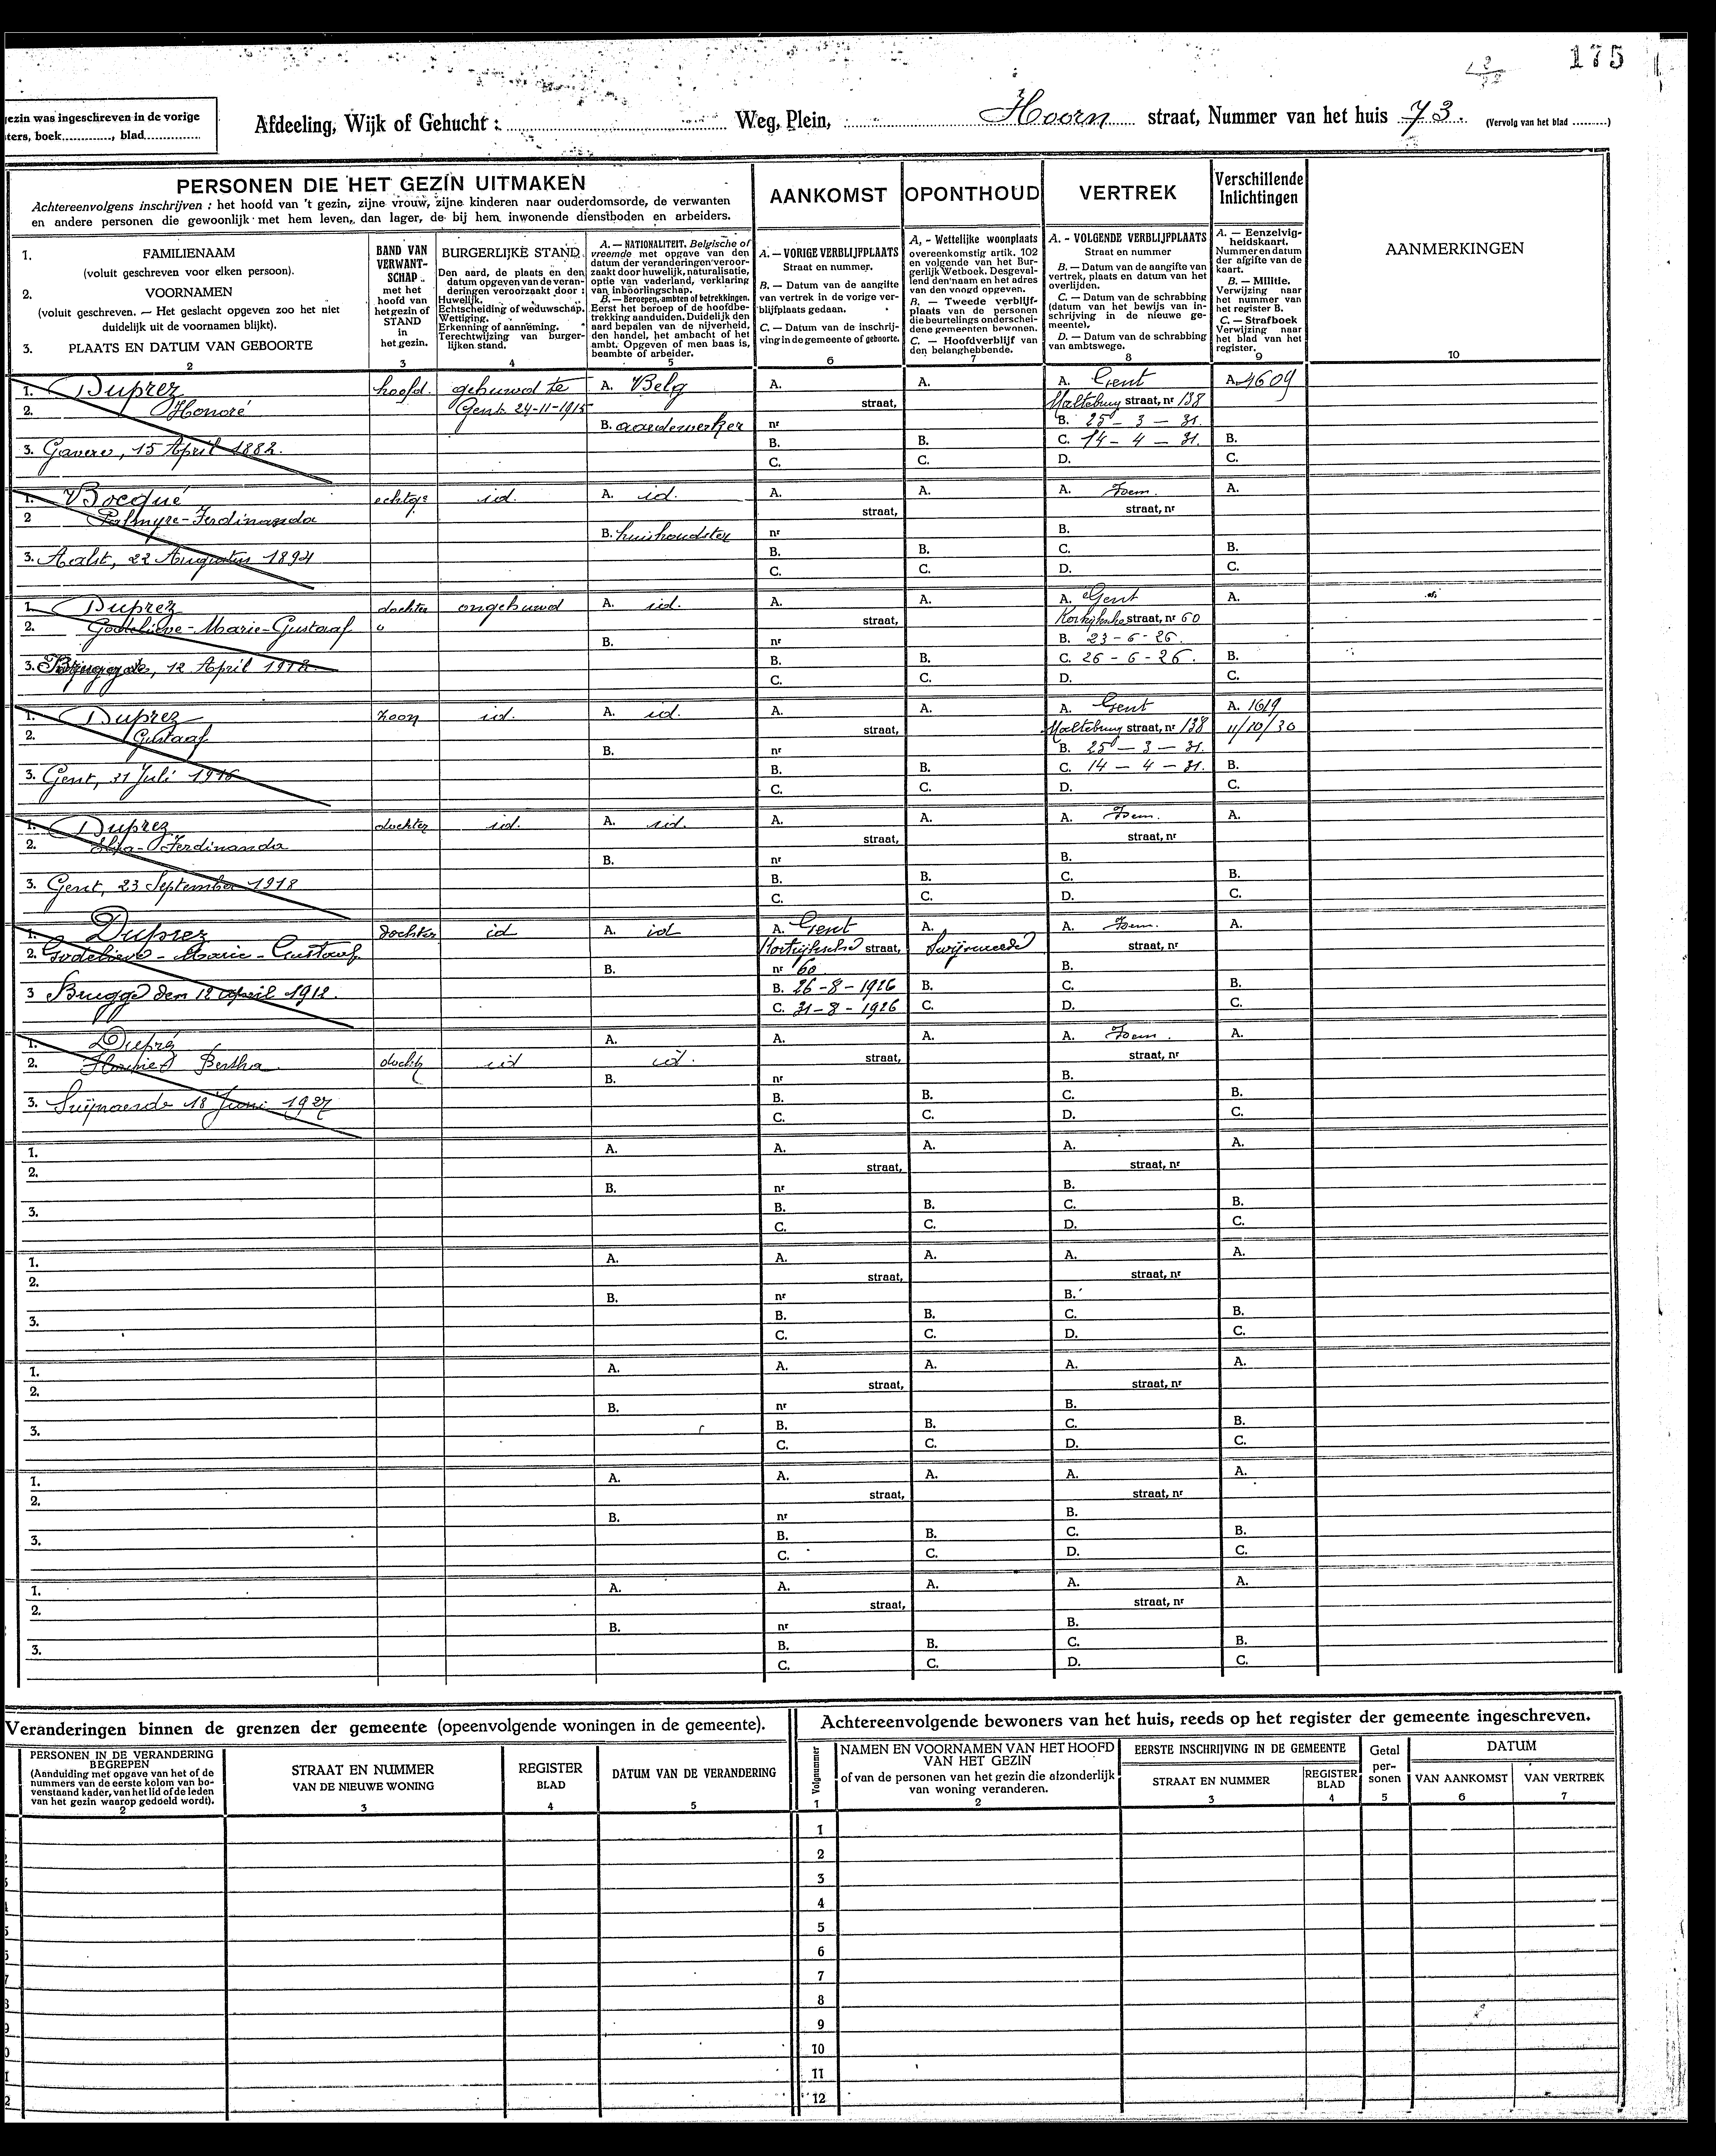 175
gezin was ingeschreven in de vorige
ters, boek............, blad...............
Afdeeling, Wijk of Gehucht : Weg, Plein, Hoorn straat, Nummer van het huis 73. (Vervolg van het blad ..........)
PERSONEN DIE HET GEZIN UITMAKEN
Achtereenvolgens inschrijven : het hoofd van 't gezin, zijne vrouw, zijne kinderen naar ouderdomsorde, de verwanten
en andere personen die gewoonlijk met hem leven, dan lager, de bij hem inwonende dienstboden en arbeiders.
AANKOMST
OPONTHOUD
VERTREK
Verschillende
Inlichtingen
1. FAMILIENAAM
(voluit geschreven voor elken persoon).
2. VOORNAMEN
(voluit geschreven. — Het geslacht opgeven zoo het niet
duidelijk uit de voornamen blijkt).
3. PLAATS EN DATUM VAN GEBOORTE
2
BAND VAN
VERWANT-
SCHAP
met het
hoofd van
het gezin of
STAND
in
het gezin.
3
BURGERLIJKE STAND
Den aard, de plaats en den
datum opgeven van de veran-
deringen veroorzaakt door :
Huwelijk.
Echtscheiding of weduwschap.
Wettiging.
Erkenning of aanneming.
Terechtwijzing van burger-
lijken stand.
4
A. — NATIONALITEIT. Belgische of
vreemde met opgave van den
datum der veranderingen veroor-
zaakt door huwelijk, naturalisatie,
optie van vaderland, verklaring
van inboorlingschap.
B. — Beroepen, ambten of betrekkingen.
Eerst het beroep of de hoofdbe-
trekking aanduiden. Duidelijk den
aard bepalen van de nijverheid,
den handel, het ambacht of het
ambt. Opgeven of men baas is,
beambte of arbeider.
5
A. — VORIGE VERBLIJFPLAATS
Straat en nummer.
B. — Datum van de aangifte
van vertrek in de vorige ver-
blijfplaats gedaan.
C. — Datum van de inschrij-
ving in de gemeente of geboorte.
6
A. - Wettelijke woonplaats
overeenkomstig artik. 102
en volgende van het Bur-
gerlijk Wetboek. Desgeval-
lend den naam en het adres
van den voogd opgeven.
B. — Tweede verblijf-
plaats van de personen
die beurtelings onderschei-
dene gemeenten bewonen.
C. — Hoofdverblijf van
den belanghebbende.
7
A. - VOLGENDE VERBLIJFPLAATS
Straat en nummer
B. — Datum van de aangifte van
vertrek, plaats en datum van het
overlijden.
C. — Datum van de schrabbing
(datum van het bewijs van in-
schrijving in de nieuwe ge-
meente).
D. — Datum van de schrabbing
van ambtswege.
8
A. — Eenzelvig-
heidskaart.
Nummer en datum
der afgifte van de
kaart.
B. — Militie.
Verwijzing naar
het nummer van
het register B.
C. — Strafboek
Verwijzing naar
het blad van het
register.
9
AANMERKINGEN
10
1. Duprez hoofd. gehuwd te A. Belg A. A. A. Gent A. 4609
2. Honoré Gent 24-11-1915 straat, Maltebrug straat, nr 138
B. aardewerker nr B. 25 - 3 - 31.
3. Gavere, 15 April 1882. B. B. C. 14 - 4 - 31. B.
C. C. D. C.
1. Bocqué echtge id. A. id. A. A. A. Idem. A.
2 Palmyre-Ferdinanda straat, straat, nr
B. huishoudster nr B.
3. Aalst, 22 Augustus 1894 B. B. C. B.
C. C. D. C.
1. Duprez dochter ongehuwd A. id. A. A. A. Gent A.
2. Godelieve-Marie-Gustaaf " straat, Kortrijksche straat, nr 60
B. nr B. 23-6-26.
3. 12 April 1912. B. B. C. 26-6-26. B.
C. C. D. C.
1. Duprez zoon id. A. id. A. A. A. Gent A. 1619
2. Gustaaf straat, Maltebrug straat, nr 138 11/10/30
B. nr B. 25 - 3 - 31.
3. Gent, 31 Juli 1916 B. B. C. 14 - 4 - 31. B.
C. C. D. C.
1. Duprez dochter id. A. id. A. A. A. Idem. A.
2. Elza-Ferdinanda straat, straat, nr
B. nr B.
3. Gent, 23 September 1918 B. B. C. B.
C. C. D. C.
1. Duprez dochter id A. id A. Gent A. A. Idem. A.
2. Godelieve-Marie-Gustaaf Kortrijksche straat, Swijnaerde straat, nr
B. nr 60 B.
3 Brugge den 12 april 1912. B. 26-8-1926 B. C. B.
C. 31-8-1926 C. D. C.
1. Dupré A. A. A. A. Idem. A.
2. Bertha docht id id. straat, straat, nr
B. nr B.
3. Swijnaerde 18 Juni 1927 B. B. C. B.
C. C. D. C.
1. A. A. A. A. A.
2. straat, straat, nr
B. nr B.
3. B. B. C. B.
C. C. D. C.
1. A. A. A. A. A.
2. straat, straat, nr
B. nr B.
3. B. B. C. B.
C. C. D. C.
1. A. A. A. A. A.
2. straat, straat, nr
B. nr B.
3. B. B. C. B.
C. C. D. C.
1. A. A. A. A. A.
2. straat, straat, nr
B. nr B.
3. B. B. C. B.
C. C. D. C.
1. A. A. A. A. A.
2. straat, straat, nr
B. nr B.
3. B. B. C. B.
C. C. D. C.
Veranderingen binnen de grenzen der gemeente (opeenvolgende woningen in de gemeente).
PERSONEN IN DE VERANDERING
BEGREPEN
(Aanduiding met opgave van het of de
nummers van de eerste kolom van bo-
venstaand kader, van het lid of de leden
van het gezin waarop gedoeld wordt).
2
STRAAT EN NUMMER
VAN DE NIEUWE WONING
3
REGISTER
BLAD
4
DATUM VAN DE VERANDERING
5
Achtereenvolgende bewoners van het huis, reeds op het register der gemeente ingeschreven.
Volgnummer
1
NAMEN EN VOORNAMEN VAN HET HOOFD
VAN HET GEZIN
of van de personen van het gezin die afzonderlijk
van woning veranderen.
2
EERSTE INSCHRIJVING IN DE GEMEENTE
STRAAT EN NUMMER
3
REGISTER
BLAD
4
Getal
per-
sonen
5
DATUM
VAN AANKOMST
6
VAN VERTREK
7
1
2
3
4
5
6
7
8
9
10
11
12